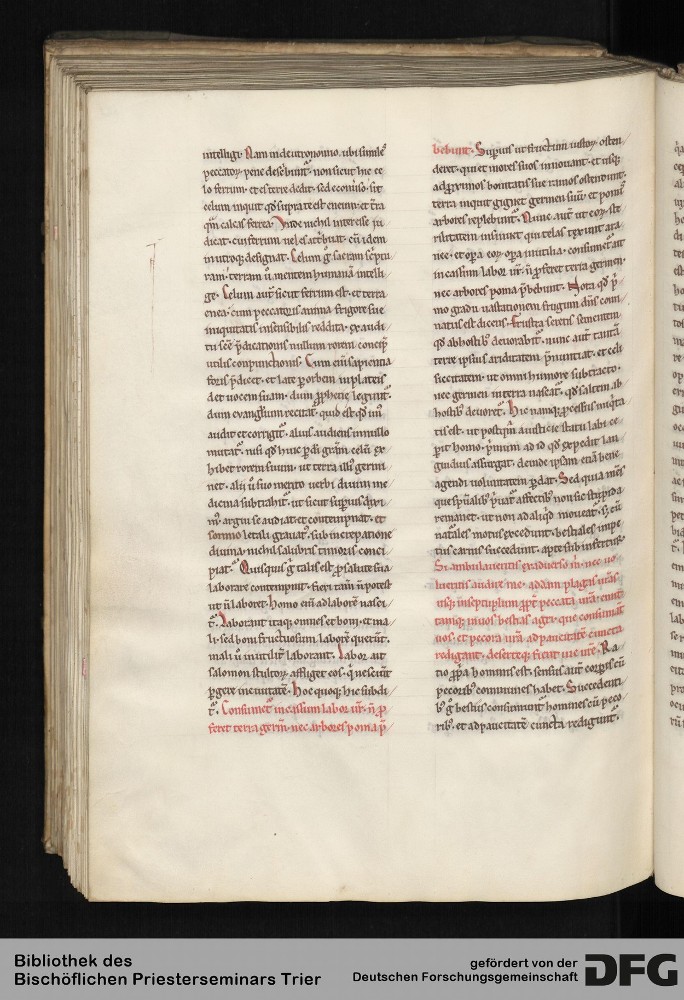 intelligi. Nam in deutronomio. ubi simile
peccatorū pene describunt᷑. non sicut hic ce
lo ferrum. et es terre dedit. sed econuso. sit
celum inquit qd supra te est eneum. et t̄ra
qm̄ calcas ferrea. Unde nichil interesse iu
dicat. cui ferrum uel es attribuat. cū idem
in utroq; designat᷑. Celum g̊ sacram scptu
ram. terram ů. mentem humanā intelli
ge. Celum aut̄ sicut ferrum est. et terra
enea. cum peccatoris anima frigore sue
iniquitatis insensibilis reddita. ex audi
tu sc̄e p̄dicationis nullum rorem concip̄
utilis conpunctionis. Cum eni sapientia
foris p̄dicet. et late p orbem in plateis
det uocem suam. dum p̄phetie legunt᷑.
dum euanglium recitat᷑. quid est qd un᷒
audit et corrigit᷑. alius audiens in nullo
mutat᷑. nisi qd huic p̄ di gr̄am. celū ex
hibet rorem suum. ut terra illi᷒ germi
net. alii ů suo merito uerbi diuini me
dicina subtrahit᷑. ut sicut supius dixi
m᷒. argui se audiat et contempnat. et
somno letali grauat᷒. sub increpatione
diuina. nichil salubris timoris conci
piat. Quisquis g̊ talis est. p salute sua
laborare contempnit. fieri tam̄ n̄ potest
ut n̄ laboret. Homo eni ad laborē nasci
t᷑. Laborant itaq; omnes et boni. et ma
li. sed boni fructuosum laborē querūt.
mali ů inutilit̄ laborant. Labor ait
salomon stultorū affliget eos. qui nesciūt
pgere in ciuitatē. Hoc quoq; hic subdi
t᷑. Consumet᷑ incassum labor ur̄. n̄ p
feret terra germ̄. nec arbores poma p̄
bebunt. Supius ut fructum iustorū osten
deret. qui et mores suos innouant. et usq;
ad pximos bonitatis sue ramos ostendunt.
terra inquit gignet germen suū. et pomis
arbores replebunt᷑. Nunc aut̄ ut eorū ste
rilitatem insinuet qui telas texunt ara
nee. et opa eorū opa inutilia. consumet᷑ ait
incassum labor ur̄. n̄ pferet terra germen.
nec arbores poma p̄bebunt. Nota qd p̄
mo gradu uastationem frugum dn̄s com
natus est dicens. Frustra seretis sementem
qd ab hostib᷒ deuorabit᷑. nunc aut̄ tantā
terre ipsius ariditatem p̄nuntiat. et celi
siccitatem. ut omni humore subtracto.
nec germen in terra nascat᷑. qd saltem ab
hostib᷒ deuoret᷑.
tis est. ut postqm̄ a iusticie statu labi ce
pit homo. p̄mum ad id qd expedit lan
guidius assurgat. deinde ipsam etiā bene
agendi uoluntatem pdat. Sed quia mēs
que spūalib᷒ p̄uat᷑ affectib᷒ non sic stupida
remanet. ut non ad aliqd moueat᷑. s; cū
nat̄ales motus excedunt. bestiales impe
tus carnis succedunt. apte subinfertur.
Si ambulaueritis ex aduerso m̄. nec uo
lueritis audire me. addam plagis ur̄is
usq; in septuplum ppt̄ peccata ur̄a. emit
tamq; in uos bestias agri. que consumant
uos. et pecora ur̄a. ad paucitatē cuncta
redigant. deserteq; fient uie ur̄e. Ra
tio ppa hominis est. sensus aut̄ corpeus cū
pecorib᷒ communes habet. Succedenti
b᷒ g̊ bestiis consumunt᷑ homines cū peco
rib᷒. et ad paucitatē cuncta redigunt᷑.
Bibliothek des
Bischöflichen Priesterseminars Trier
gefördert von der
Deutschen Forschungsgemeinschaft
DFG